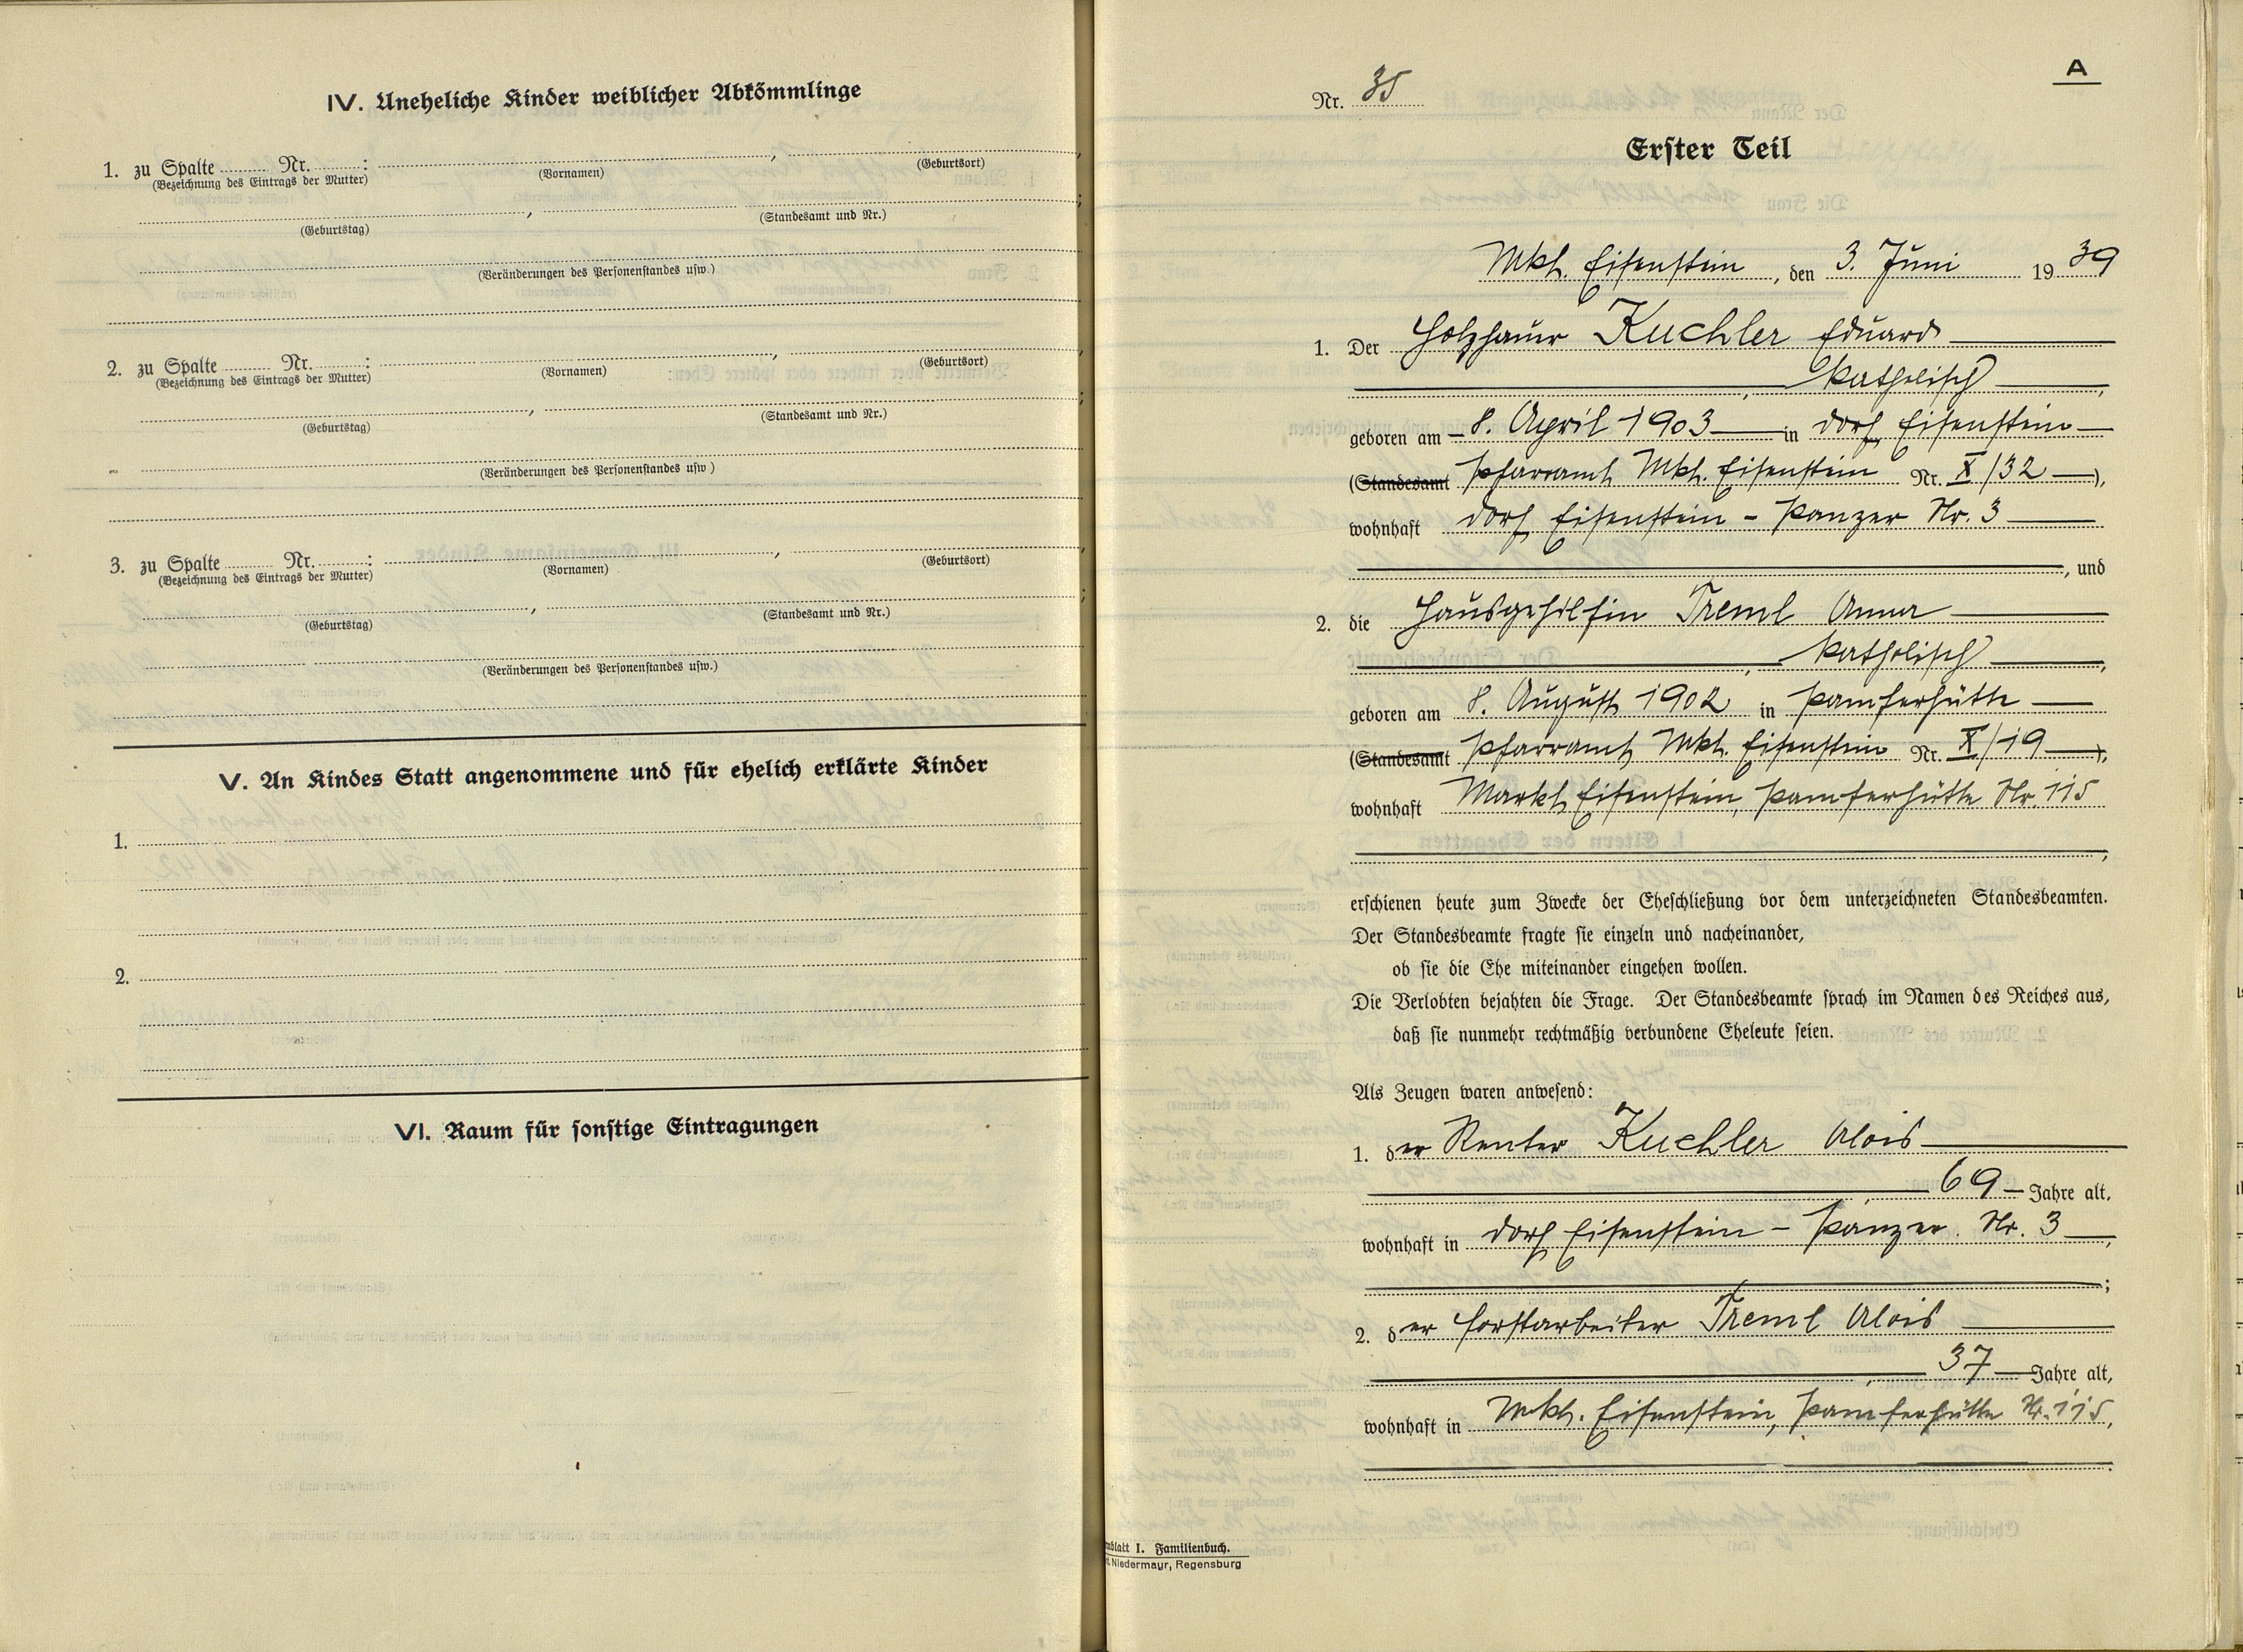 IV. Uneheliche Kinder weiblicher Abkömmlinge
1. zu Spalte ........ Nr. ........: ........, ........
(Bezeichnung des Eintrags der Mutter) (Vornamen) (Geburtsort)
........, ........;
(Geburtstag) (Standesamt und Nr.)
(Veränderungen des Personenstandes usw.)
2. zu Spalte ........ Nr. ........: ........, ........
(Bezeichnung des Eintrags der Mutter) (Vornamen) (Geburtsort)
........, ........;
(Geburtstag) (Standesamt und Nr.)
(Veränderungen des Personenstandes usw.)
3. zu Spalte ........ Nr. ........: ........, ........
(Bezeichnung des Eintrags der Mutter) (Vornamen) (Geburtsort)
........, ........;
(Geburtstag) (Standesamt und Nr.)
(Veränderungen des Personenstandes usw.)
V. An Kindes Statt angenommene und für ehelich erklärte Kinder
1.
2.
VI. Raum für sonstige Eintragungen
A
Nr. 35
Erster Teil
Mkt. Eisenstein, den 3. Juni 1939
1. Der Holzhauer Kuchler Eduard
, katholisch,
geboren am 8. April 1903 in Dorf Eisenstein
(Standesamt Pfarramt Mkt. Eisenstein Nr. X/32),
wohnhaft Dorf Eisenstein - Panzer Nr. 3
, und
2. die Hausgehilfin Treml Anna
, katholisch,
geboren am 8. August 1902 in Pamferhütte
(Standesamt Pfarramt Mkt. Eisenstein Nr. X/19),
wohnhaft Markt Eisenstein, Pamferhütte Nr. 115
,
erschienen heute zum Zwecke der Eheschließung vor dem unterzeichneten Standesbeamten.
Der Standesbeamte fragte sie einzeln und nacheinander,
ob sie die Ehe miteinander eingehen wollen.
Die Verlobten bejahten die Frage. Der Standesbeamte sprach im Namen des Reiches aus,
daß sie nunmehr rechtmäßig verbundene Eheleute seien.
Als Zeugen waren anwesend:
1. der Renter Kuchler Alois
, 69 Jahre alt,
wohnhaft in Dorf Eisenstein - Panzer Nr. 3,
;
2. der Forstarbeiter Treml Alois
, 37 Jahre alt,
wohnhaft in Mkt. Eisenstein, Pamferhütte Nr. 115,
.
blatt I. Familienbuch.
Niedermayr, Regensburg